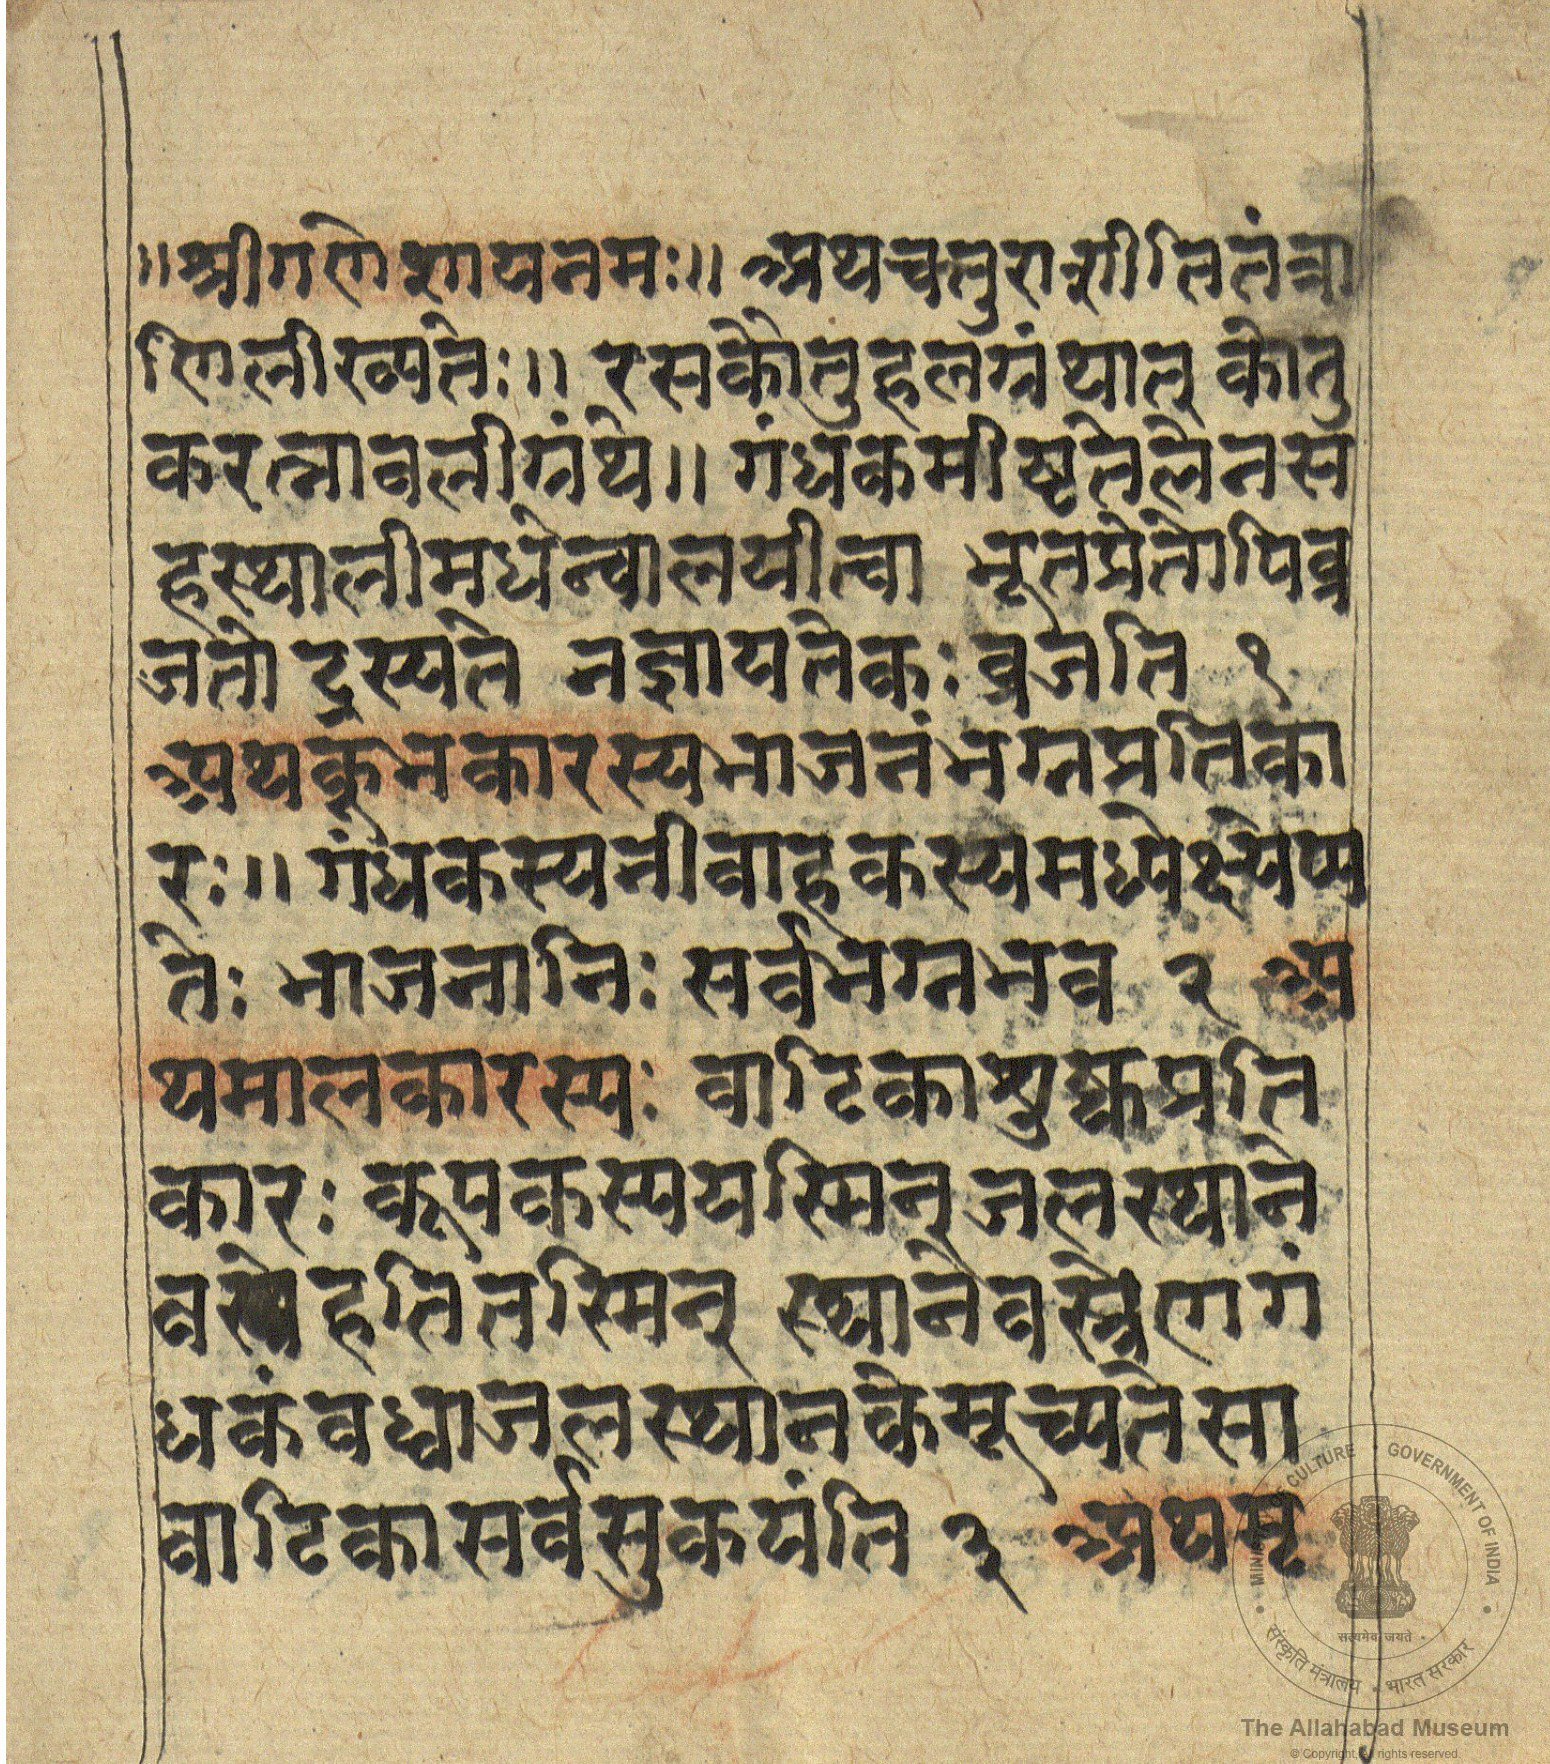 ॥श्रीगणेशायनमः॥ अथचतुराशीतितंत्रा
णिलीख्यतेः॥ रसकौतुहलग्रंथात् कौतु
करत्नावलीग्रंथे॥ गंधकमीष्टतेलेनस
हस्थालीमधेज्वालयीत्वा भूतप्रेतोपिव्र
जतो द्रस्यते नज्ञायतेकः व्रजति १
अथकुंभकारस्यभाजनंभग्नप्रतिका
रः॥ गंधकस्यनीवाहकस्यमध्येक्ष्येप्य
तेः भाजनानिः सर्वभग्नभव २ अ
थमालकारस्यः वाटिकाशुष्कप्रति
कारः कूपकस्ययस्मिन् जलस्थाने
हतितस्मिन् स्थानेवस्त्रेणगं
धकंवध्वाजलस्थानकेमृच्यतेसा
वाटिकासर्वसुकयंति ३ अथमृ
MINISTRY OF CULTURE • GOVERNMENT OF INDIA
सत्यमेव जयते
संस्कृति मंत्रालय • भारत सरकार
The Allahabad Museum
© Copyright, All rights reserved.